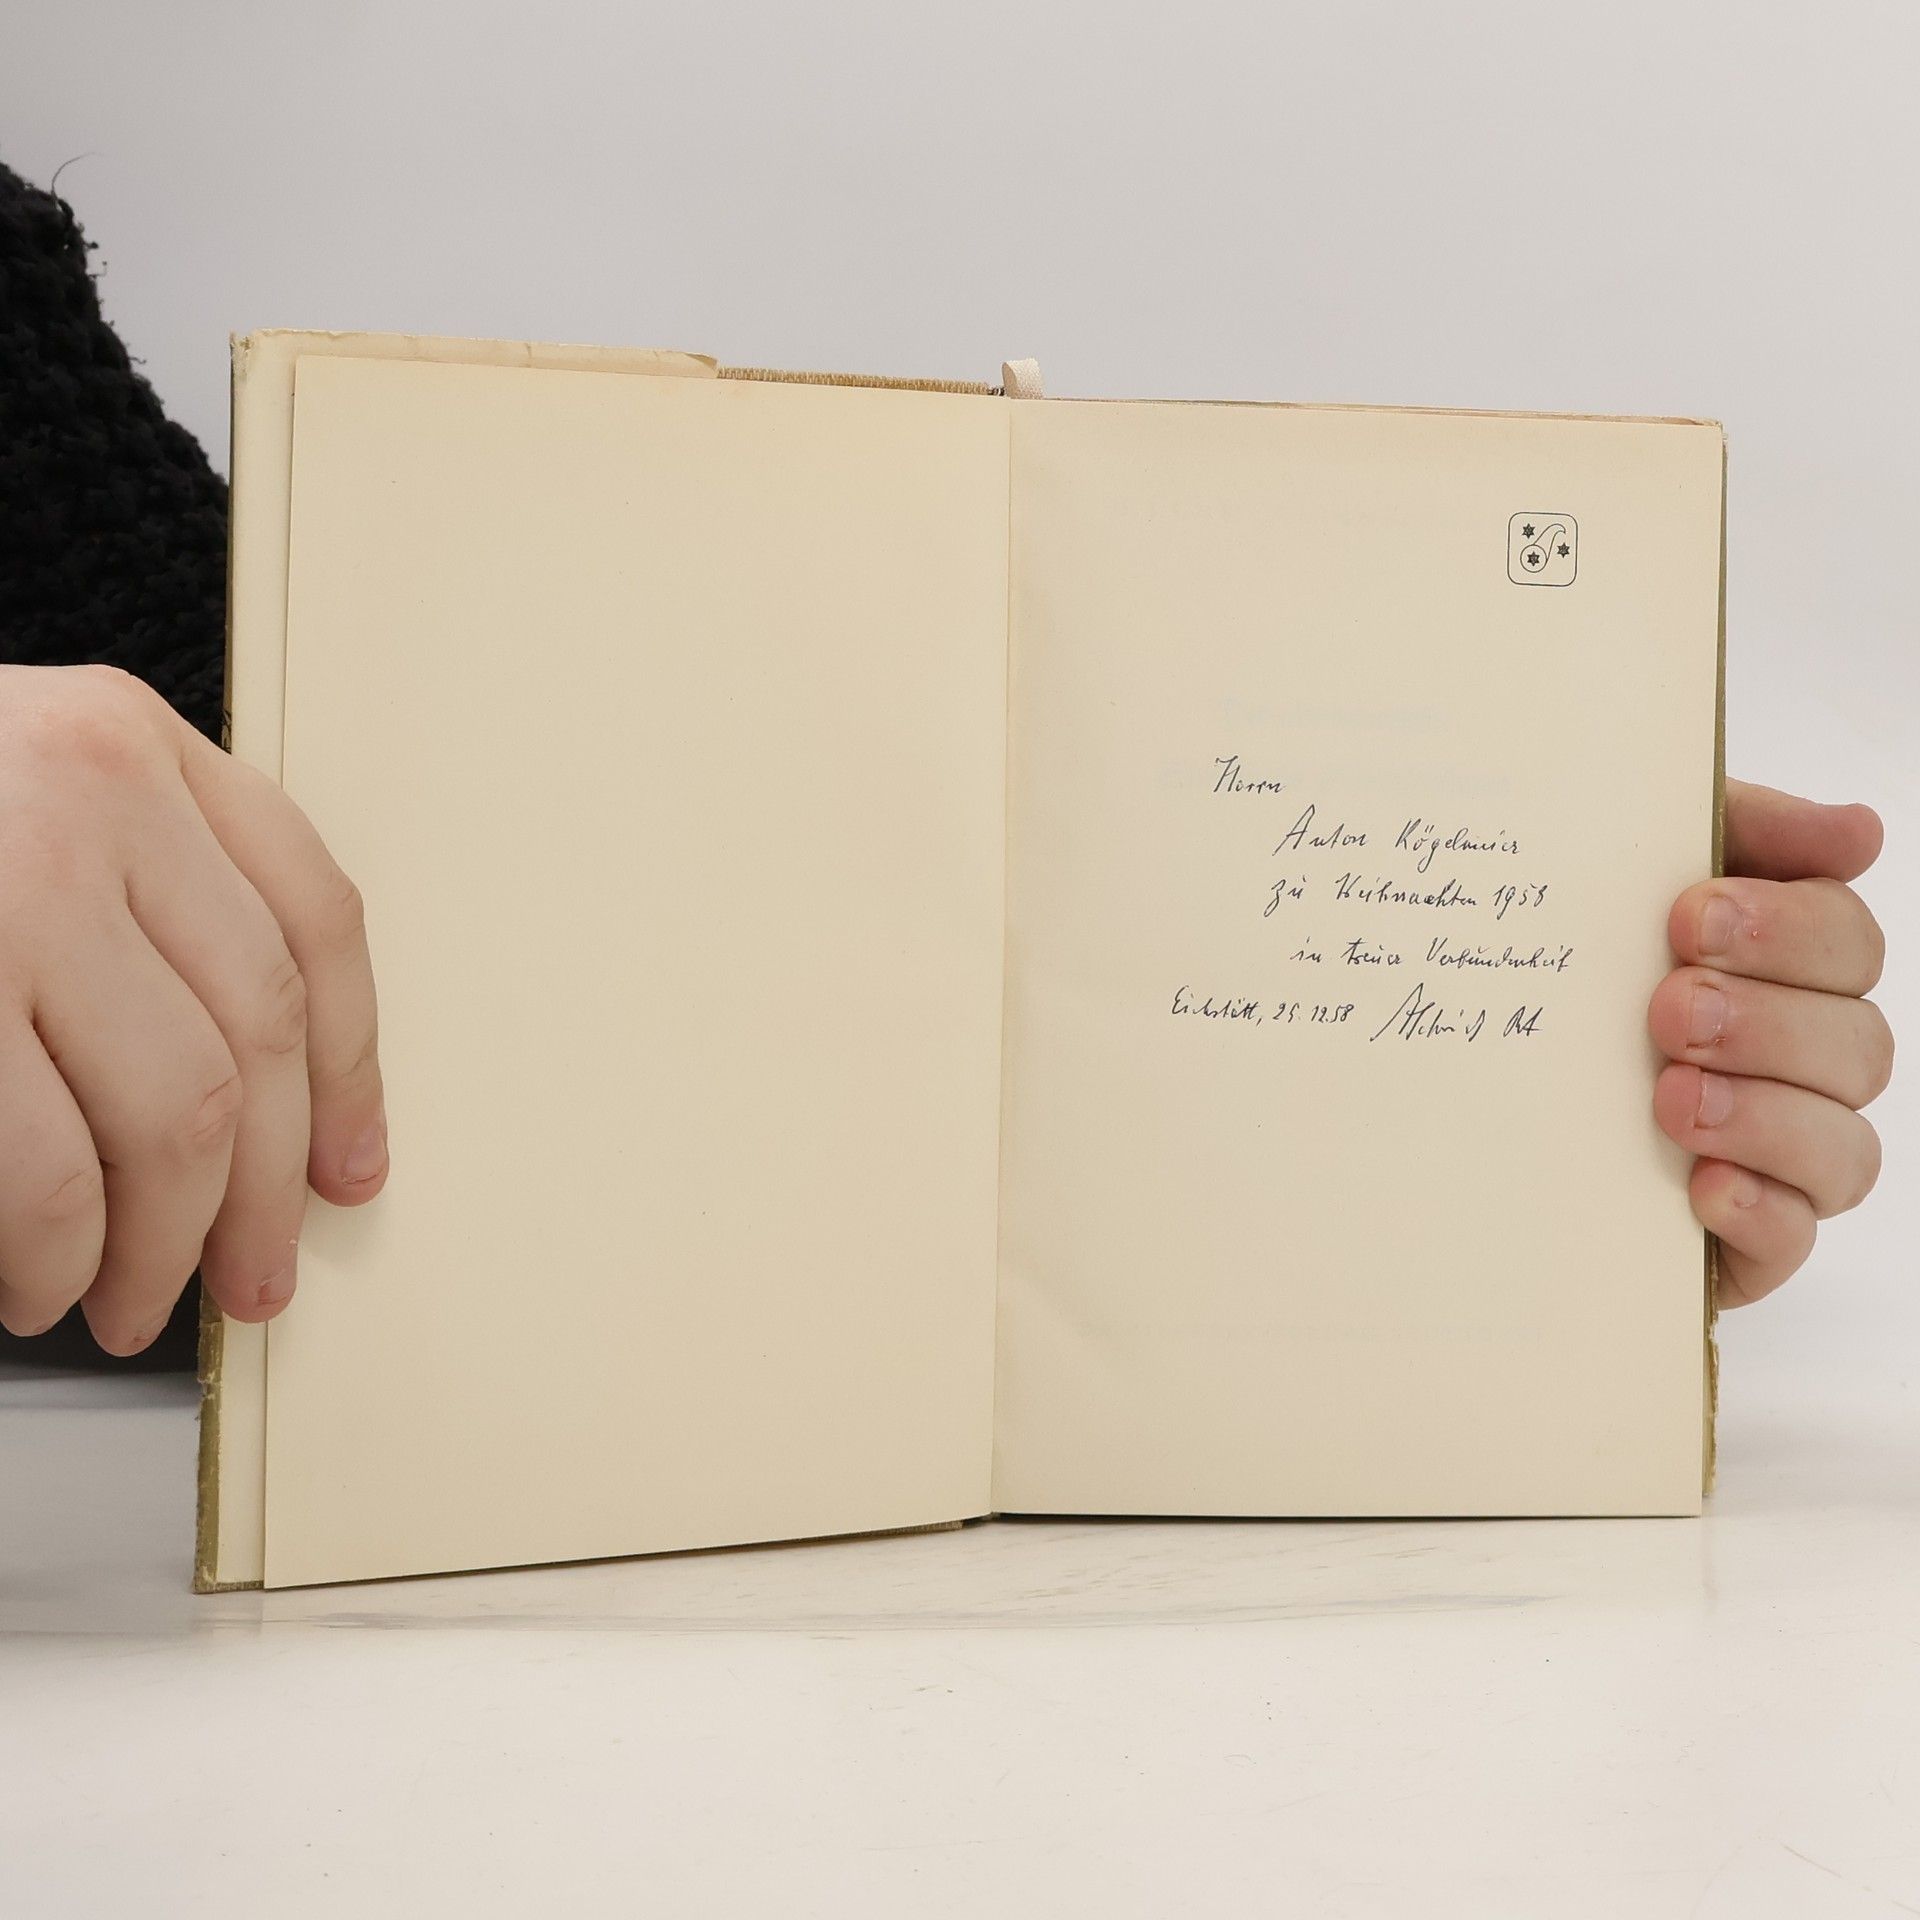 Herrn
Anton Kögelmeier
zu Weihnachten 1958
in treuer Verbundenheit
Eichstätt, 25.12.58